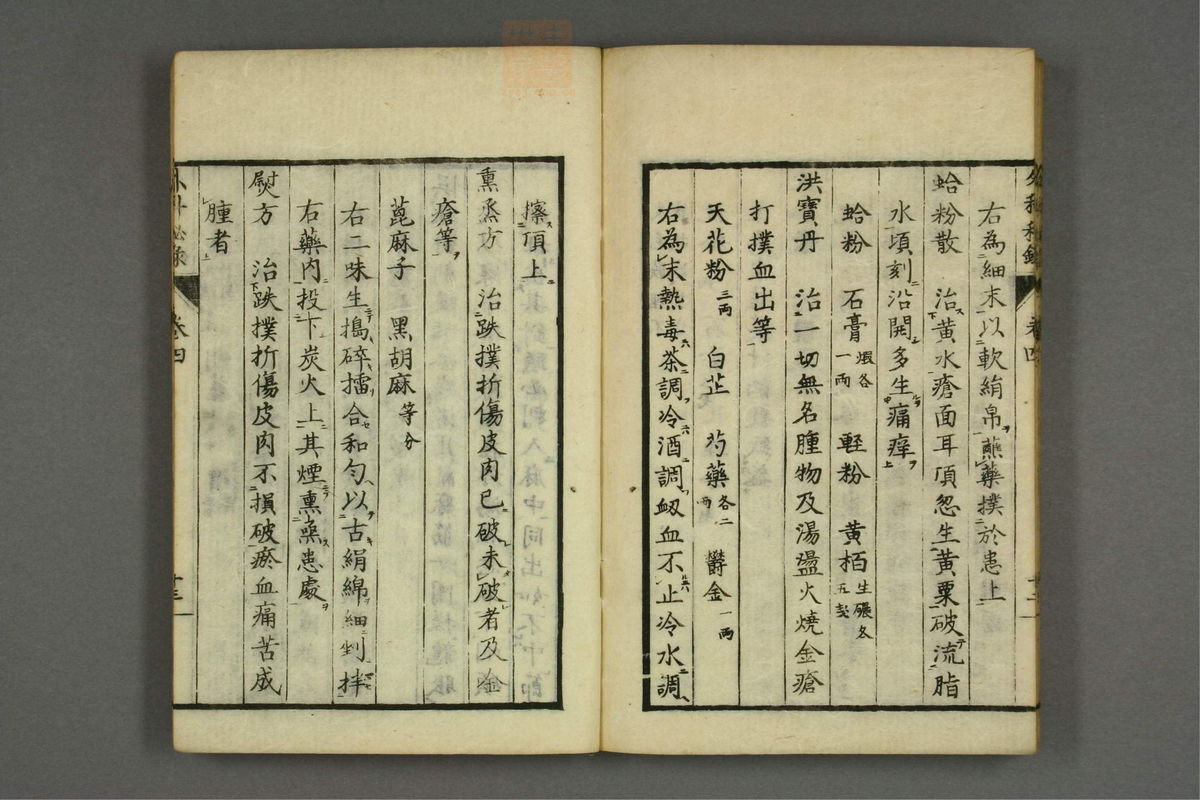 右為細末以軟絹帛蘸藥撲於患上
蛤粉散 治黃水瘡面耳項忽生黃粟破流脂
水頃刻沿開多生痛痒
蛤粉 石膏煅各一兩 軽粉 黃栢生碾各五
洪寶丹 治一切無名腫物及湯盪火燒金瘡
打撲血出等
天花粉三兩 白芷 芍藥各二兩 欝金一兩
右為末熱毒茶調冷酒調衂血不止冷水調
擦頂上
熏烝方 治跌撲折傷皮肉已破未破者及金
瘡等
蓖麻子 黑胡麻等分
右二味生搗碎擂合和匀以古絹綿細剉拌
右藥內投下炭火上其煙熏患處
熨方 治跌撲折傷皮肉不損破瘀血痛苦成
腫者
外科秘錄 卷四